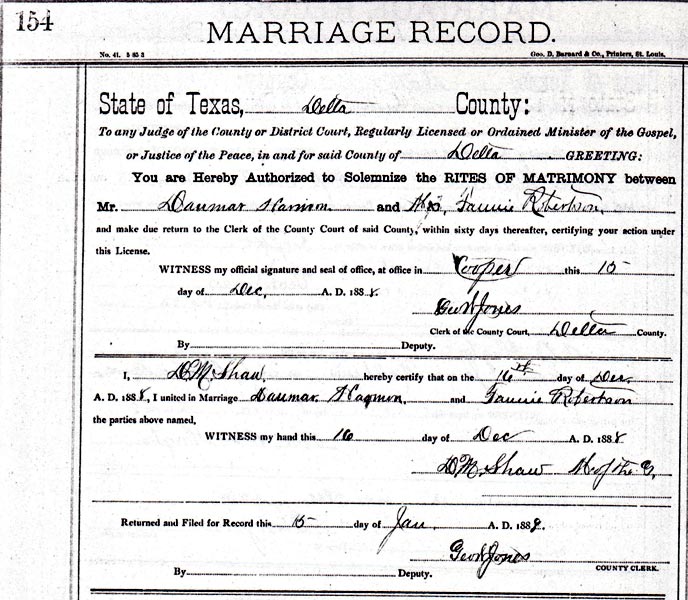 154
MARRIAGE RECORD.
No. 41. 5 85 3 Geo. D. Barnard & Co., Printers, St. Louis.
State of Texas, Delta County:
To any Judge of the County or District Court, Regularly Licensed or Ordained Minister of the Gospel,
or Justice of the Peace, in and for said County of Delta GREETING:
You are Hereby Authorized to Solemnize the RITES OF MATRIMONY between
Mr. Daumar and Fannie Robertson,
and make due return to the Clerk of the County Court of said County, within sixty days thereafter, certifying your action under
this License.
WITNESS my official signature and seal of office, at office in Cooper this 15
day of Dec, A. D. 1888.
Geo W Jones
Clerk of the County Court, Delta County.
By Deputy.
I, D. M. Shaw, hereby certify that on the 16th day of Dec.
A. D. 1888, I united in Marriage Daumar and Fannie Robertson
the parties above named.
WITNESS my hand this 16 day of Dec A. D. 1888
D. M. Shaw M of the G,
Returned and Filed for Record this 15 day of Jan, A. D. 1889.
Geo W Jones
COUNTY CLERK.
By Deputy.